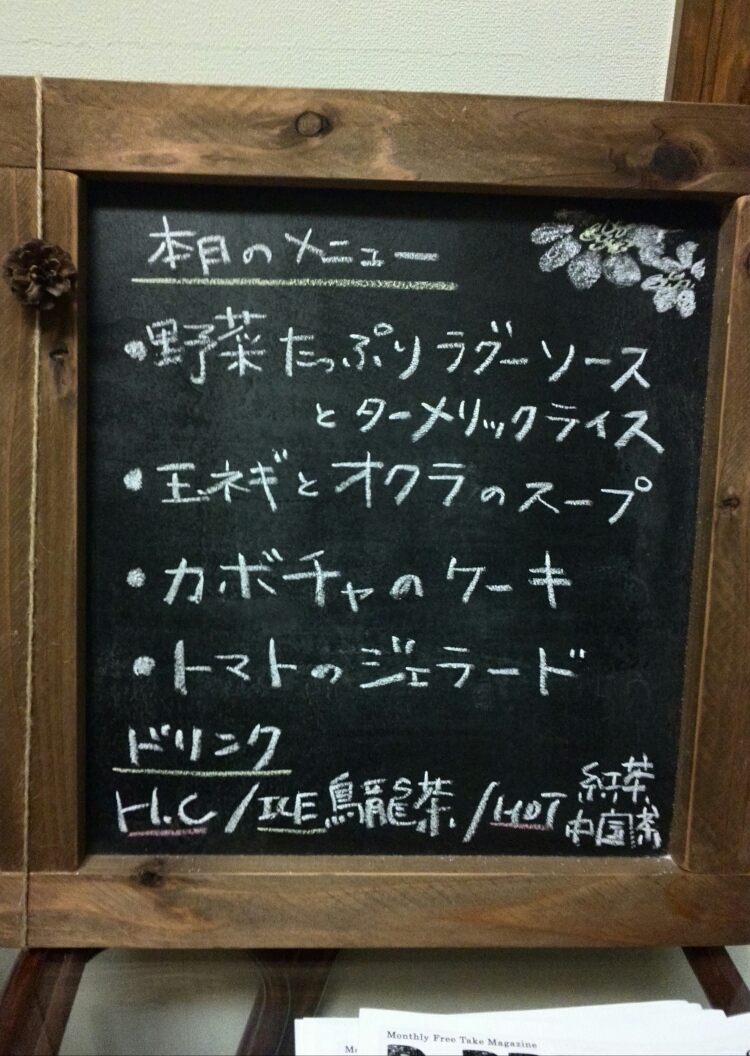 本日のメニュー
・野菜たっぷりラグーソース
とターメリックライス
・玉ネギとオクラのスープ
・カボチャのケーキ
・トマトのジェラード
ドリンク
H.C/ICE烏龍茶/HOT 紅茶
中国茶
Monthly Free Take Magazine